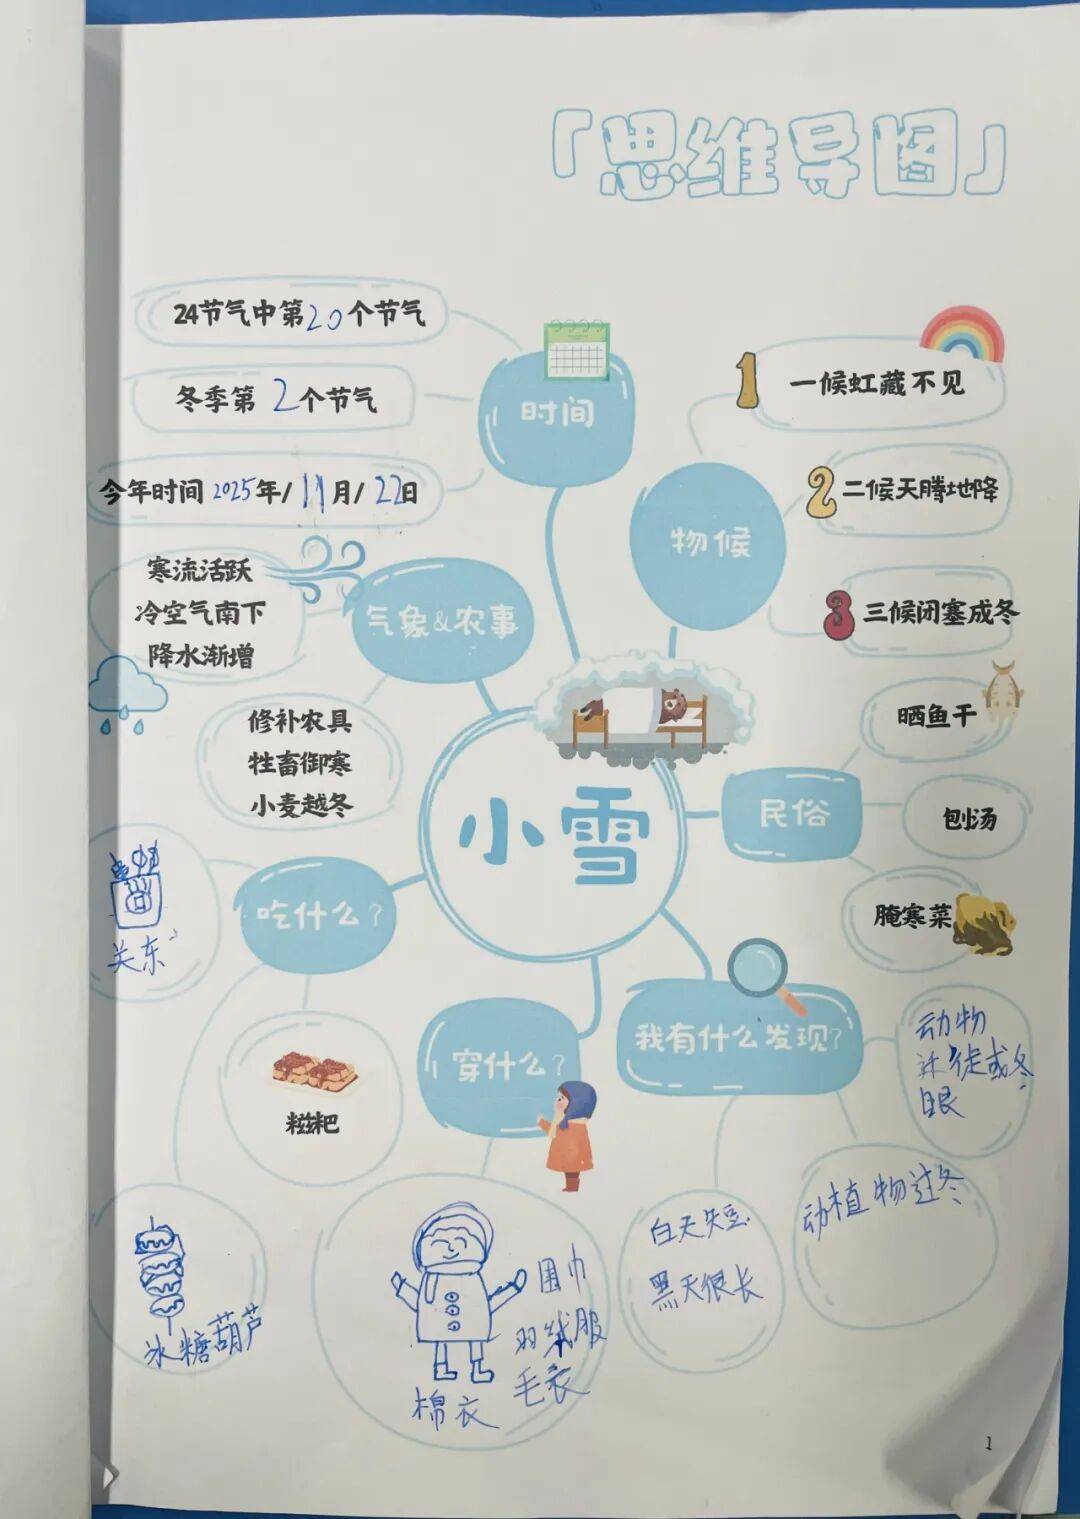 「思维导图」
24节气中第20个节气
冬季第2个节气
今年时间2025年/11月/22日
时间
1
一候虹藏不见
2
二候天腾地降
3
三候闭塞成冬
物候
寒流活跃
冷空气南下
降水渐增
气象&农事
修补农具
牲畜御寒
小麦越冬
小雪
晒鱼干
民俗
刨汤
腌寒菜
吃什么?
关东
糍粑
冰糖葫芦
穿什么?
围巾
羽绒服
毛衣
棉衣
我有什么发现?
动物
徒或冬
眠
动植物过冬
白天短
黑天很长
1